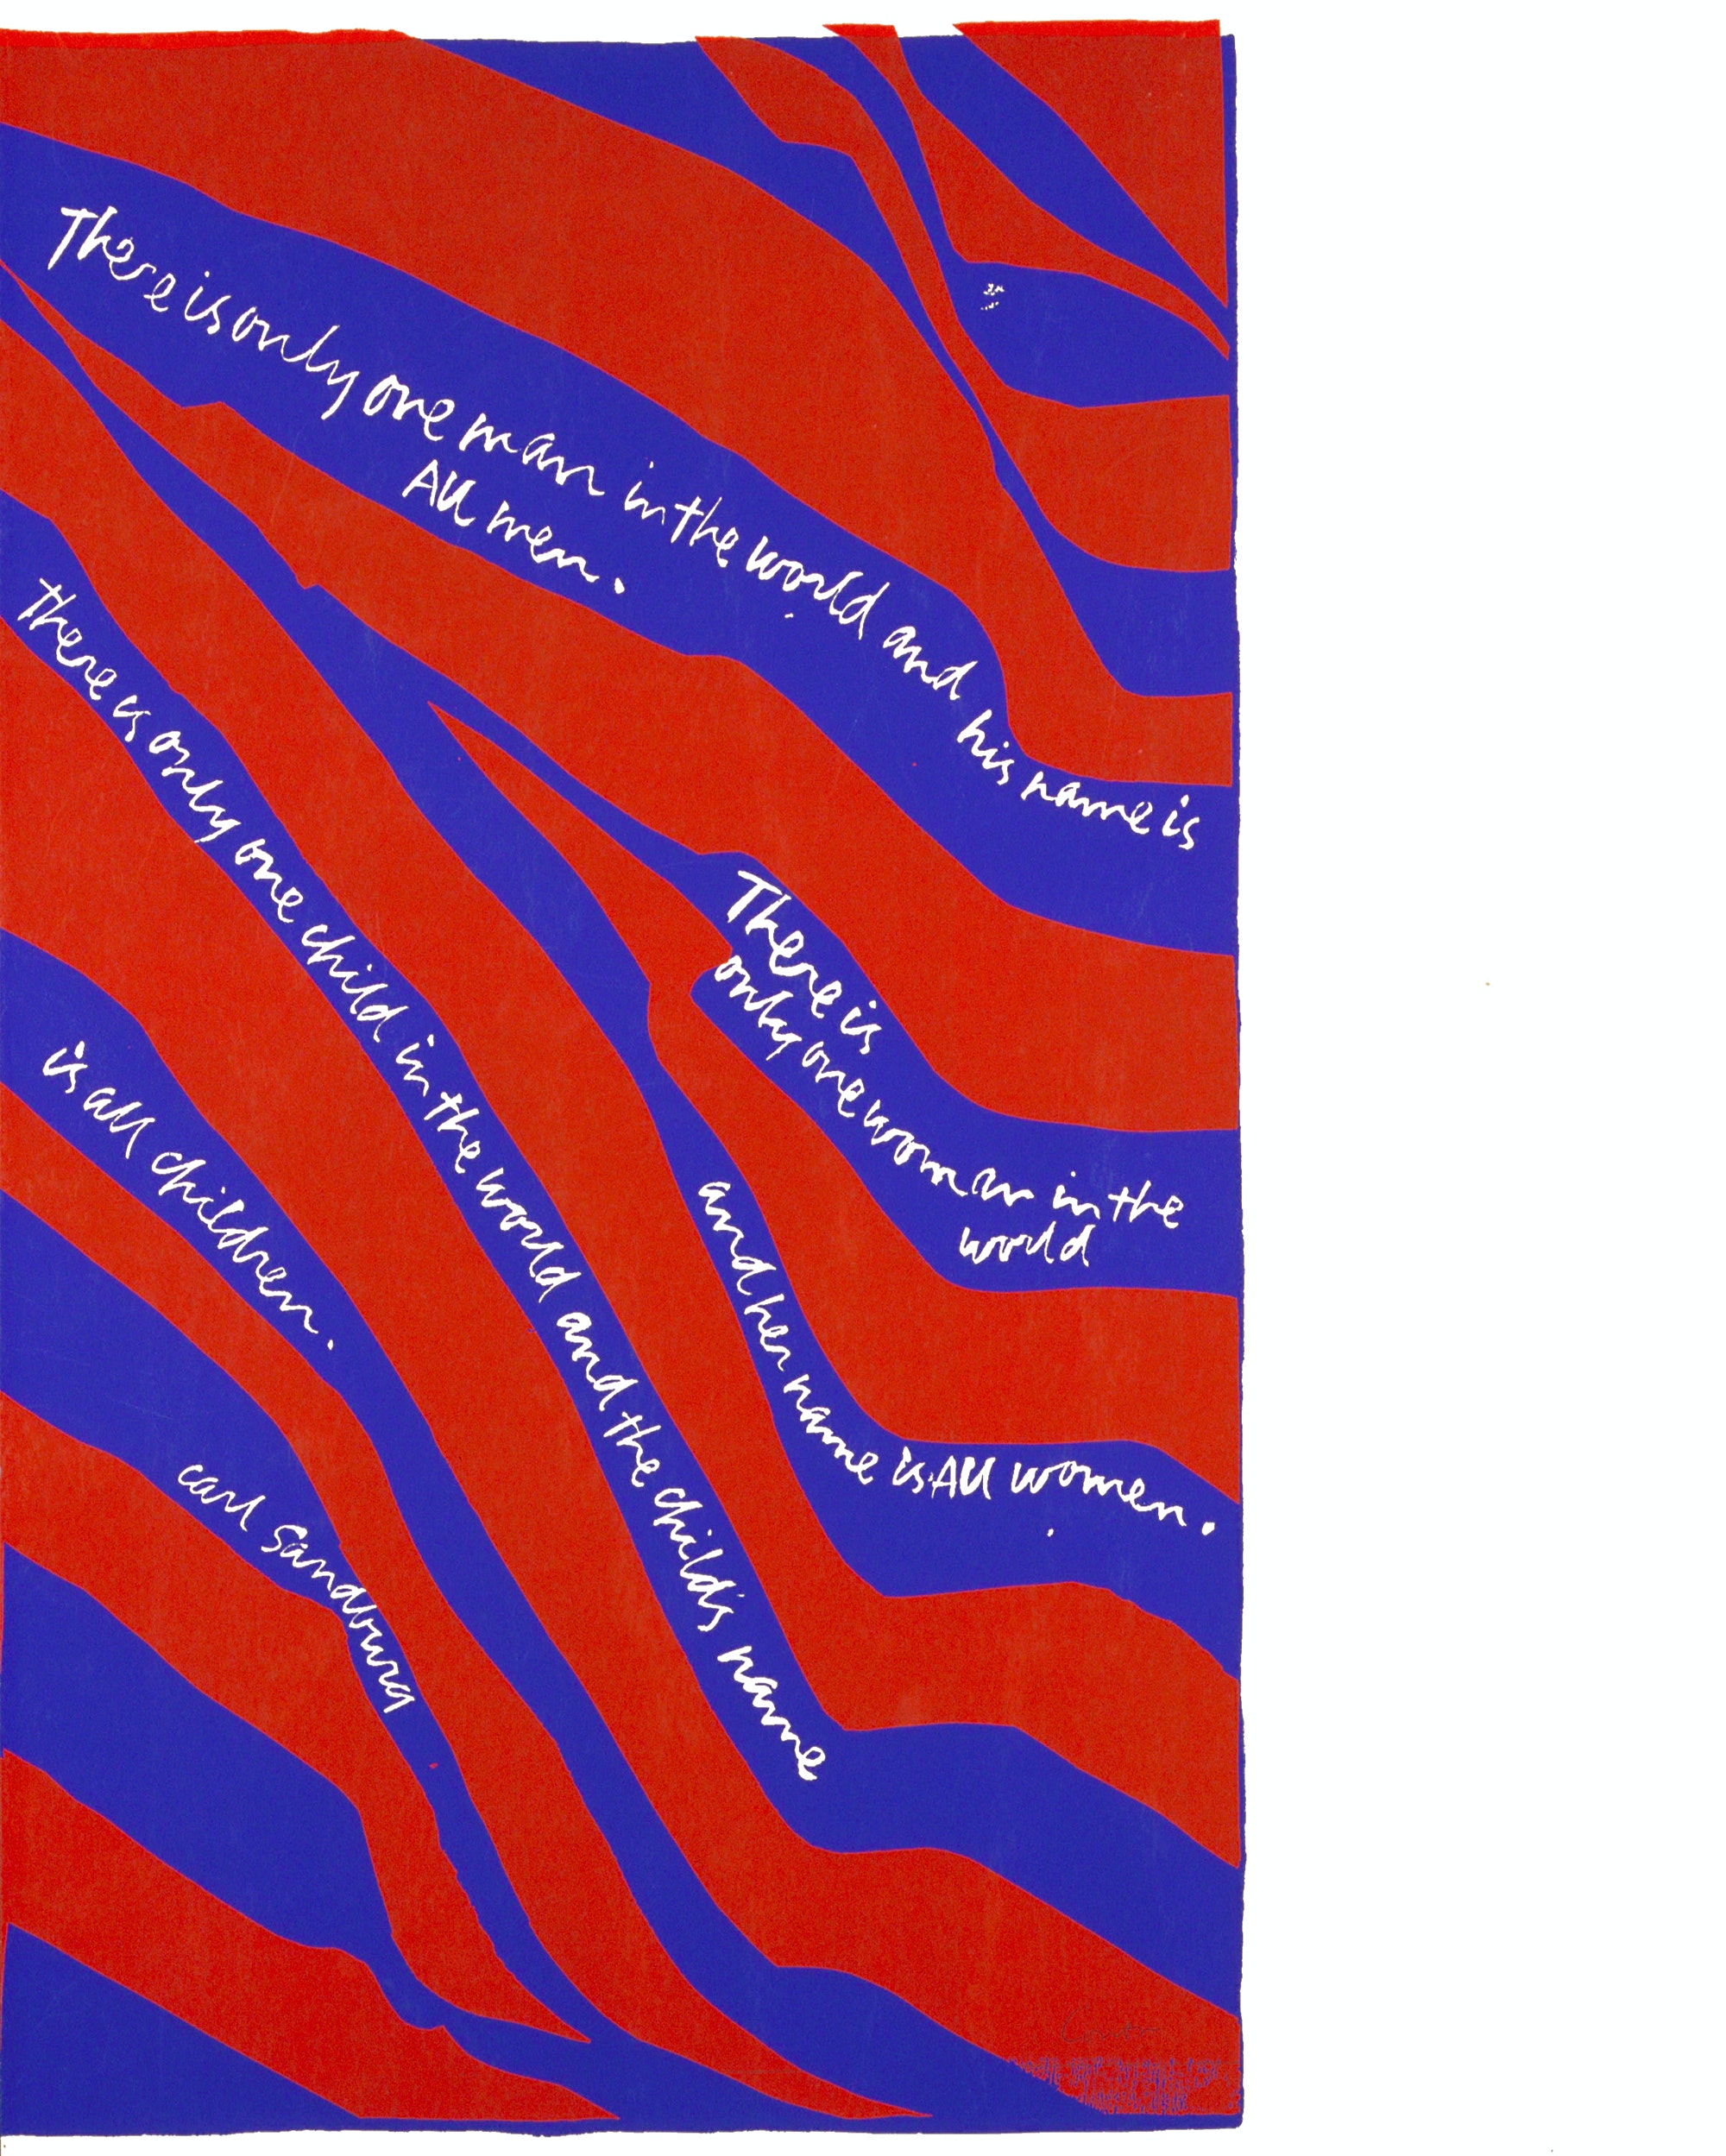 There is only one man in the world and his name is
All men.
There is
only one woman in the
world
and her name is All women.
there is only one child in the world and the child's name
is all children.
carl Sandburg